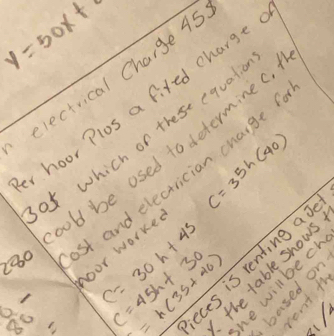 y = 50x +
n electrical Charge 45$
Per hour Plus a fixed charge of
30$ which of these equations
could be used to determine C, the
Cost and electrician charge forh
hour worked
C = 30h + 45
C = 35h(40)
C = 45h + 30
= h(35+40)
280
Pieces is renting a Jet
X. the table shows
he will be cha
based on